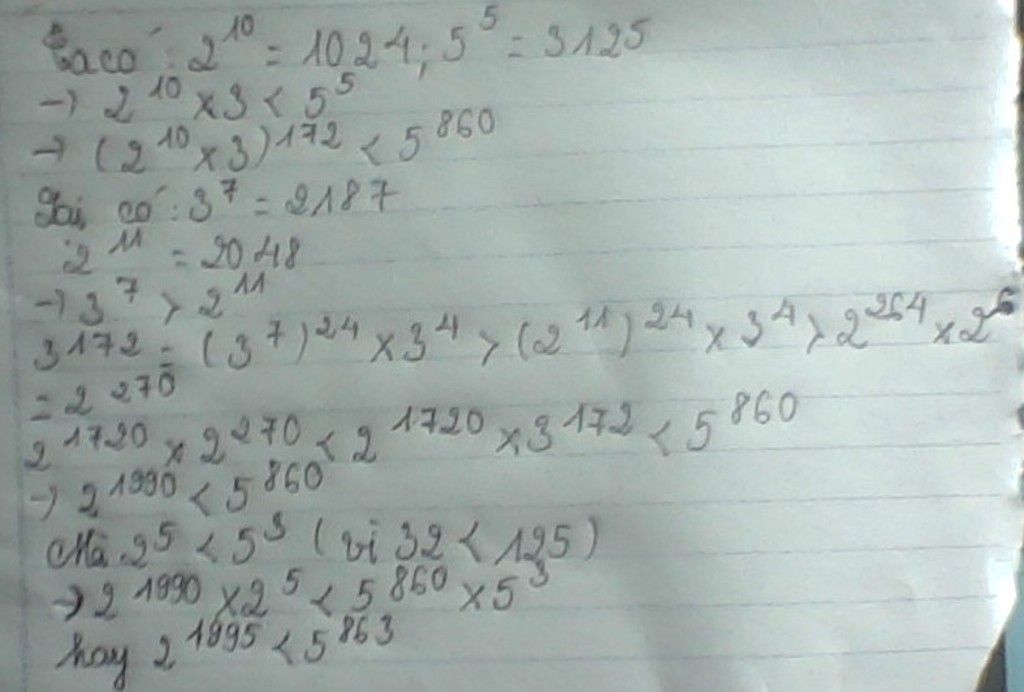 Ta có : 2^10 = 1024 ; 5^5 = 3125
→ 2^10 × 3 < 5^5
→ (2^10 × 3)^172 < 5^860
Lại có : 3^7 = 2187
2^11 = 2048
→ 3^7 > 2^11
3^172 = (3^7)^24 × 3^4 > (2^11)^24 × 3^4 > 2^264 × 2^6
= 2^270
2^1720 × 2^270 < 2^1720 × 3^172 < 5^860
→ 2^1990 < 5^860
Mà 2^5 < 5^3 (vì 32 < 125)
→ 2^1990 × 2^5 < 5^860 × 5^3
hay 2^1995 < 5^863